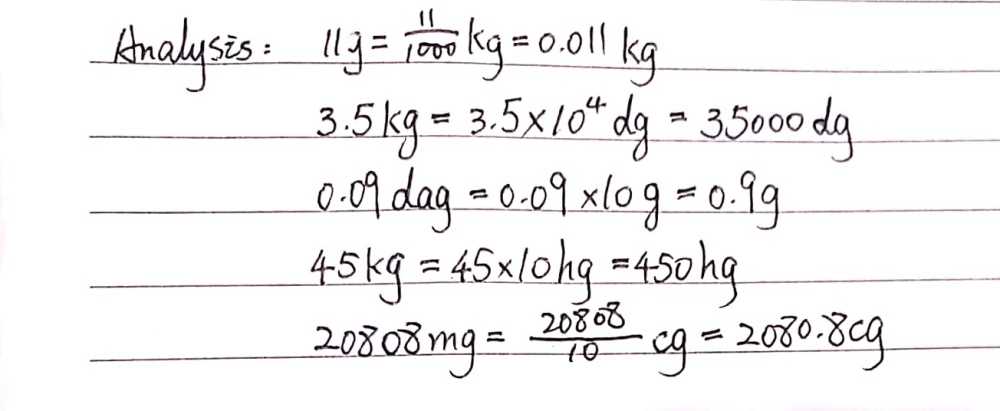 Analysis: 11g = 11/1000 kg = 0.011 kg
3.5kg = 3.5×10⁴ dg = 35000 dg
0.09 dag = 0.09 ×10 g = 0.9g
45kg = 45×10hg = 450hg
20808mg = 20808/10 cg = 2080.8cg